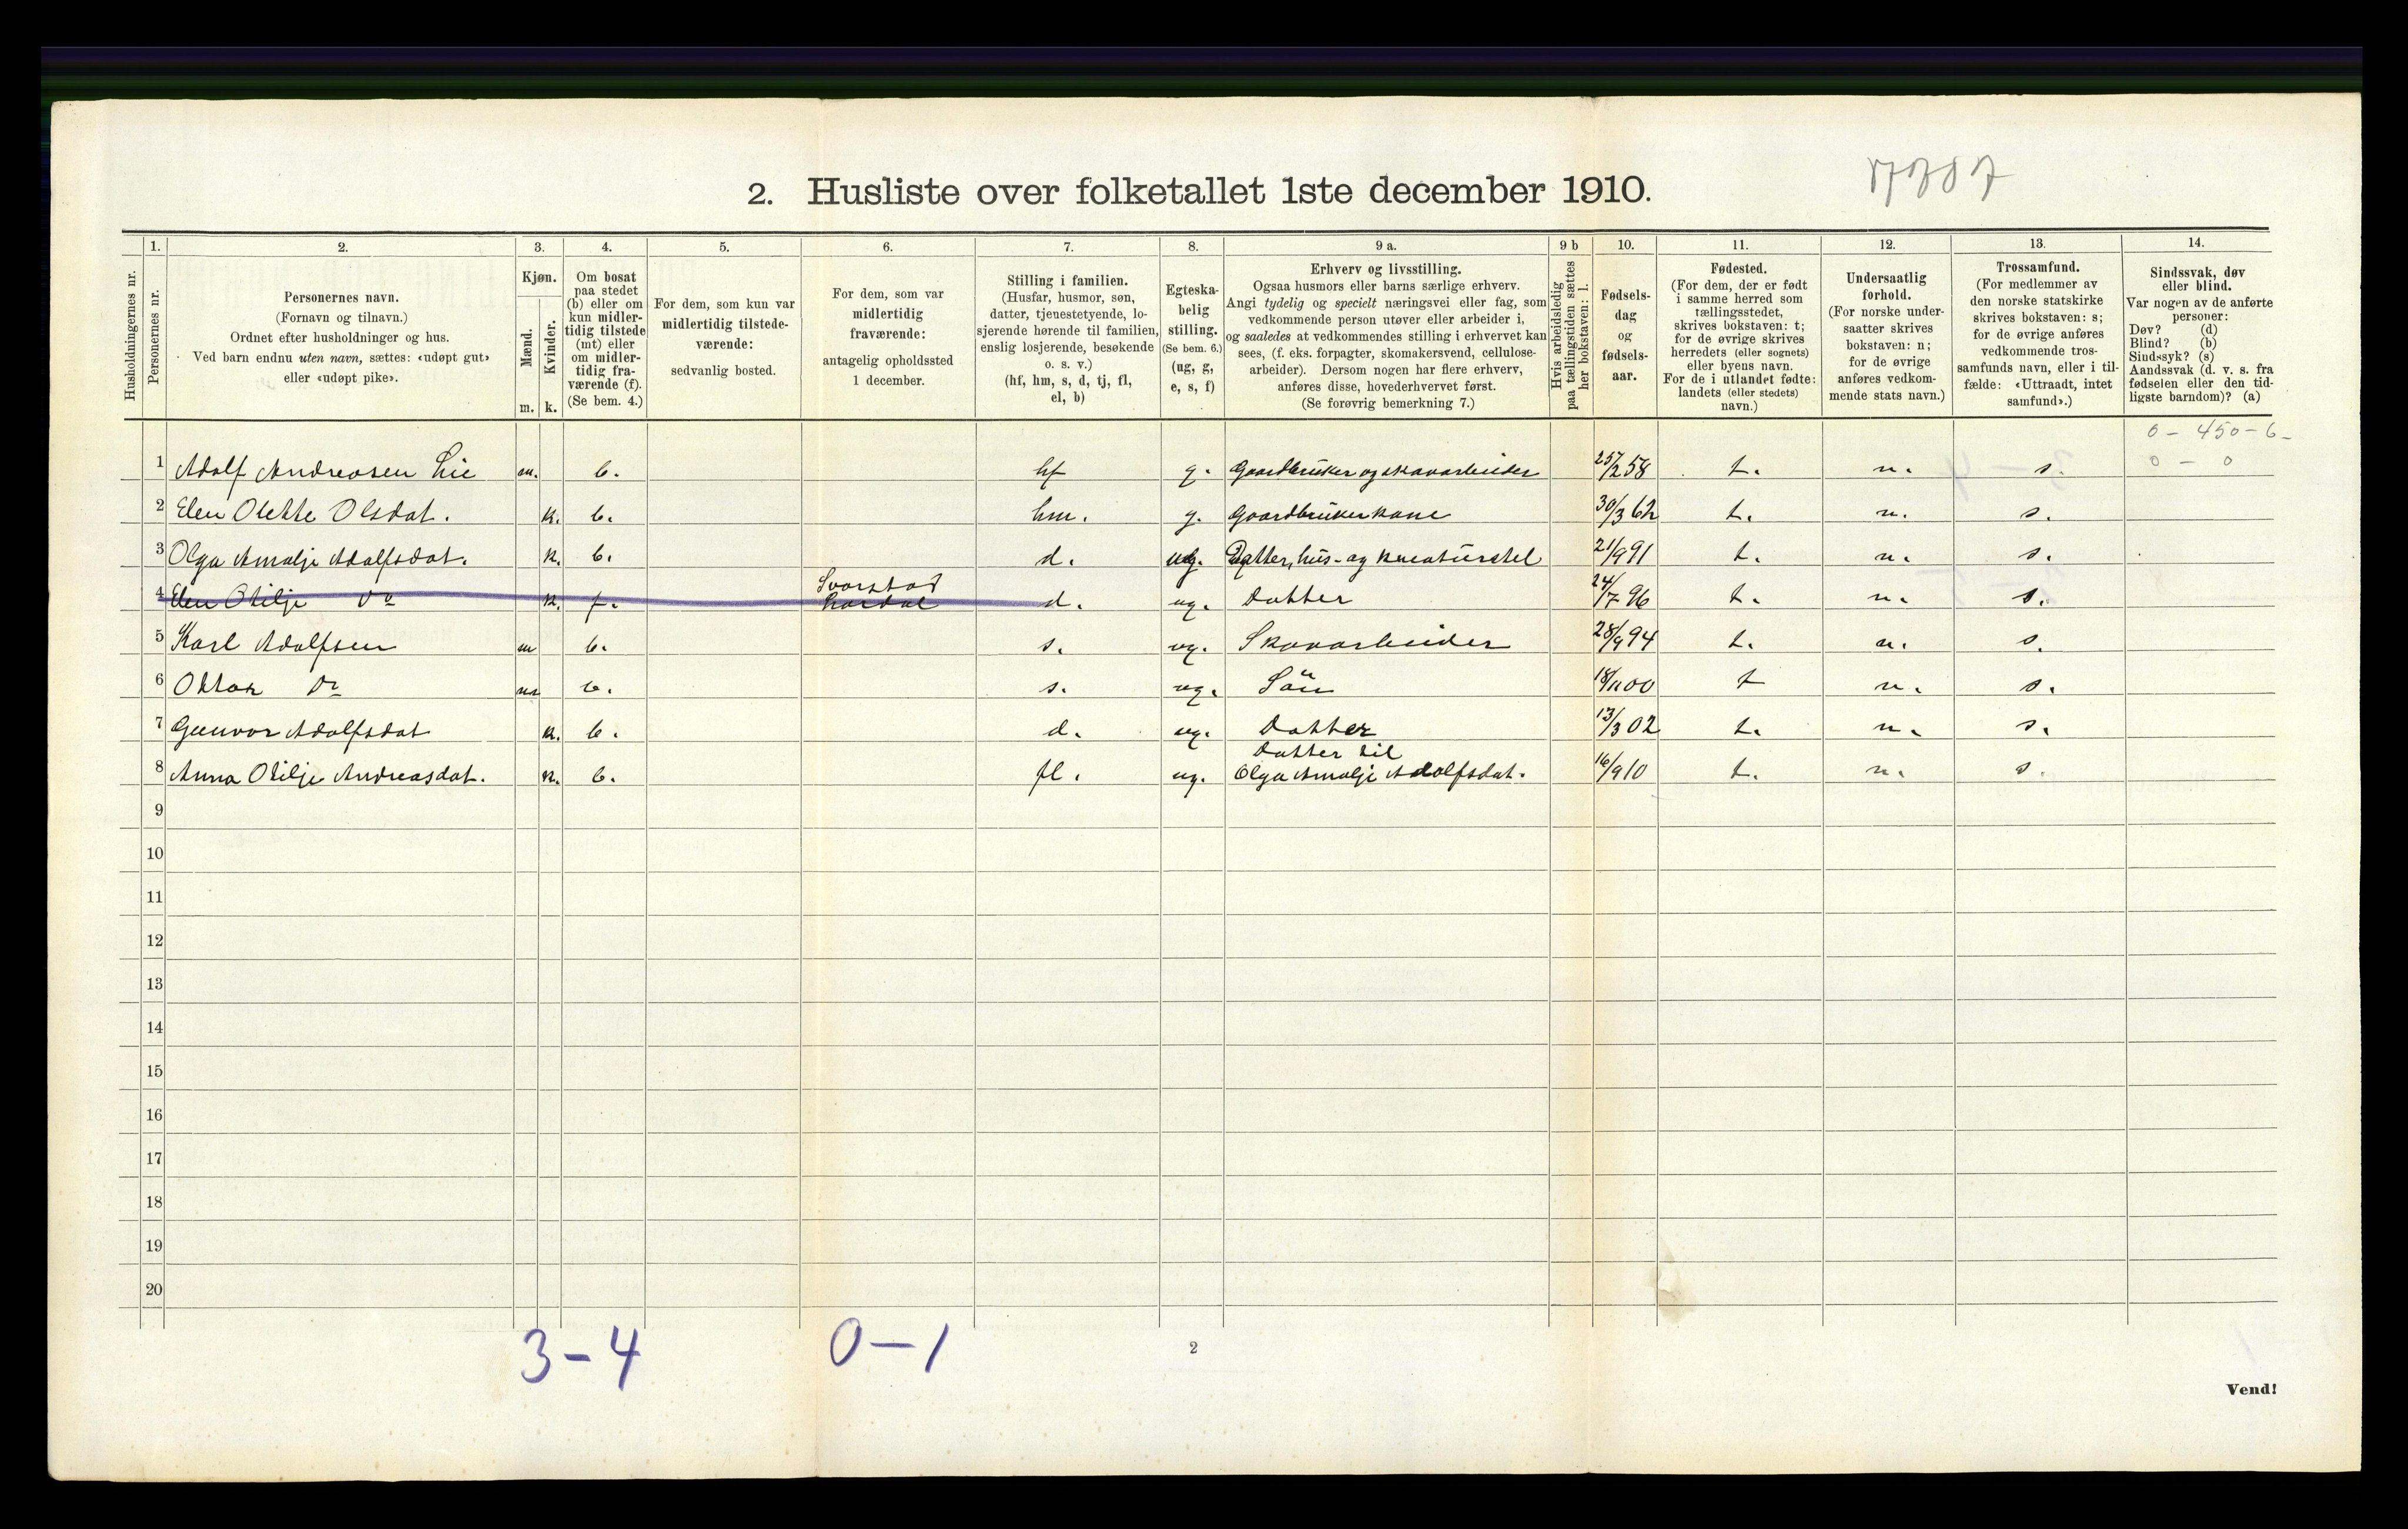 2. Husliste over folketallet 1ste december 1910.
Husholdningernes nr.
1. Personernes nr.
2. Personernes navn.
(Fornavn og tilnavn.)
Ordnet efter husholdninger og hus.
Ved barn endnu uten navn, sættes: «udøpt gut»
eller «udøpt pike».
3. Kjøn.
Mænd. Kvinder.
m. k.
4. Om bosat
paa stedet
(b) eller om
kun midler-
tidig tilstede
(mt) eller
om midler-
tidig fra-
værende (f).
(Se bem. 4.)
5. For dem, som kun var
midlertidig tilstede-
værende:
sedvanlig bosted.
6. For dem, som var
midlertidig
fraværende:
antagelig opholdssted
1 december.
7. Stilling i familien.
(Husfar, husmor, søn,
datter, tjenestetyende, lo-
sjerende hørende til familien,
enslig losjerende, besøkende
o. s. v.)
(hf, hm, s, d, tj, fl,
el, b)
8. Egteska-
belig
stilling.
(Se bem. 6.)
(ug, g,
e, s, f)
9 a. Erhverv og livsstilling.
Ogsaa husmors eller barns særlige erhverv.
Angi tydelig og specielt næringsvei eller fag, som
vedkommende person utøver eller arbeider i,
og saaledes at vedkommendes stilling i erhvervet kan
sees, (f. eks. forpagter, skomakersvend, cellulose-
arbeider). Dersom nogen har flere erhverv,
anføres disse, hovederhvervet først.
(Se forøvrig bemerkning 7.)
9 b Hvis arbeidsledig
paa tællingstiden sættes
her bokstaven: l.
10. Fødsels-
dag
og
fødsels-
aar.
11. Fødested.
(For dem, der er født
i samme herred som
tællingsstedet,
skrives bokstaven: t;
for de øvrige skrives
herredets (eller sognets)
eller byens navn.
For de i utlandet fødte:
landets (eller stedets)
navn.)
12. Undersaatlig
forhold.
(For norske under-
saatter skrives
bokstaven: n;
for de øvrige
anføres vedkom-
mende stats navn.)
13. Trossamfund.
(For medlemmer av
den norske statskirke
skrives bokstaven: s;
for de øvrige anføres
vedkommende tros-
samfunds navn, eller i til-
fælde: «Uttraadt, intet
samfund».)
14. Sindssvak, døv
eller blind.
Var nogen av de anførte
personer:
Døv? (d)
Blind? (b)
Sindssyk? (s)
Aandssvak (d. v. s. fra
fødselen eller den tid-
ligste barndom)? (a)
0 - 450 - 6 -
0 - 0
1 Adolf Andreasen Lie m. b. hf g. Gaardbruker og skovarbeider 25/2 58 t. n. s.
2 Elen Olette Olsdat. k. b. hm. g. Gaardbrukerkone 30/3 62 t. n. s.
3 Olga Amalje Adolfsdat. k. b. d. ug. Datter, hus- og kreaturstel 21/9 91 t. n. s.
Svarstad
4 Elen Otilje do k. f. d. ug. Datter 24/7 96 t. n. s.
5 Karl Adolfsen m b. s. ug. Skovarbeider 28/9 94 t. n. s.
6 Ottar do m b. s. ug. Søn 18/11 00 t n. s.
7 Gunvor Adolfsdat k. b. d. ug. Datter 13/3 02 t. n. s.
Datter til
8 Anna Otilje Andreasdat. k. b. fl. ug. Olga Amalje Adolfsdat. 16/9 10 t. n. s.
9
10
11
12
13
14
15
16
17
18
19
20
3-4 0-1
2
Vend!